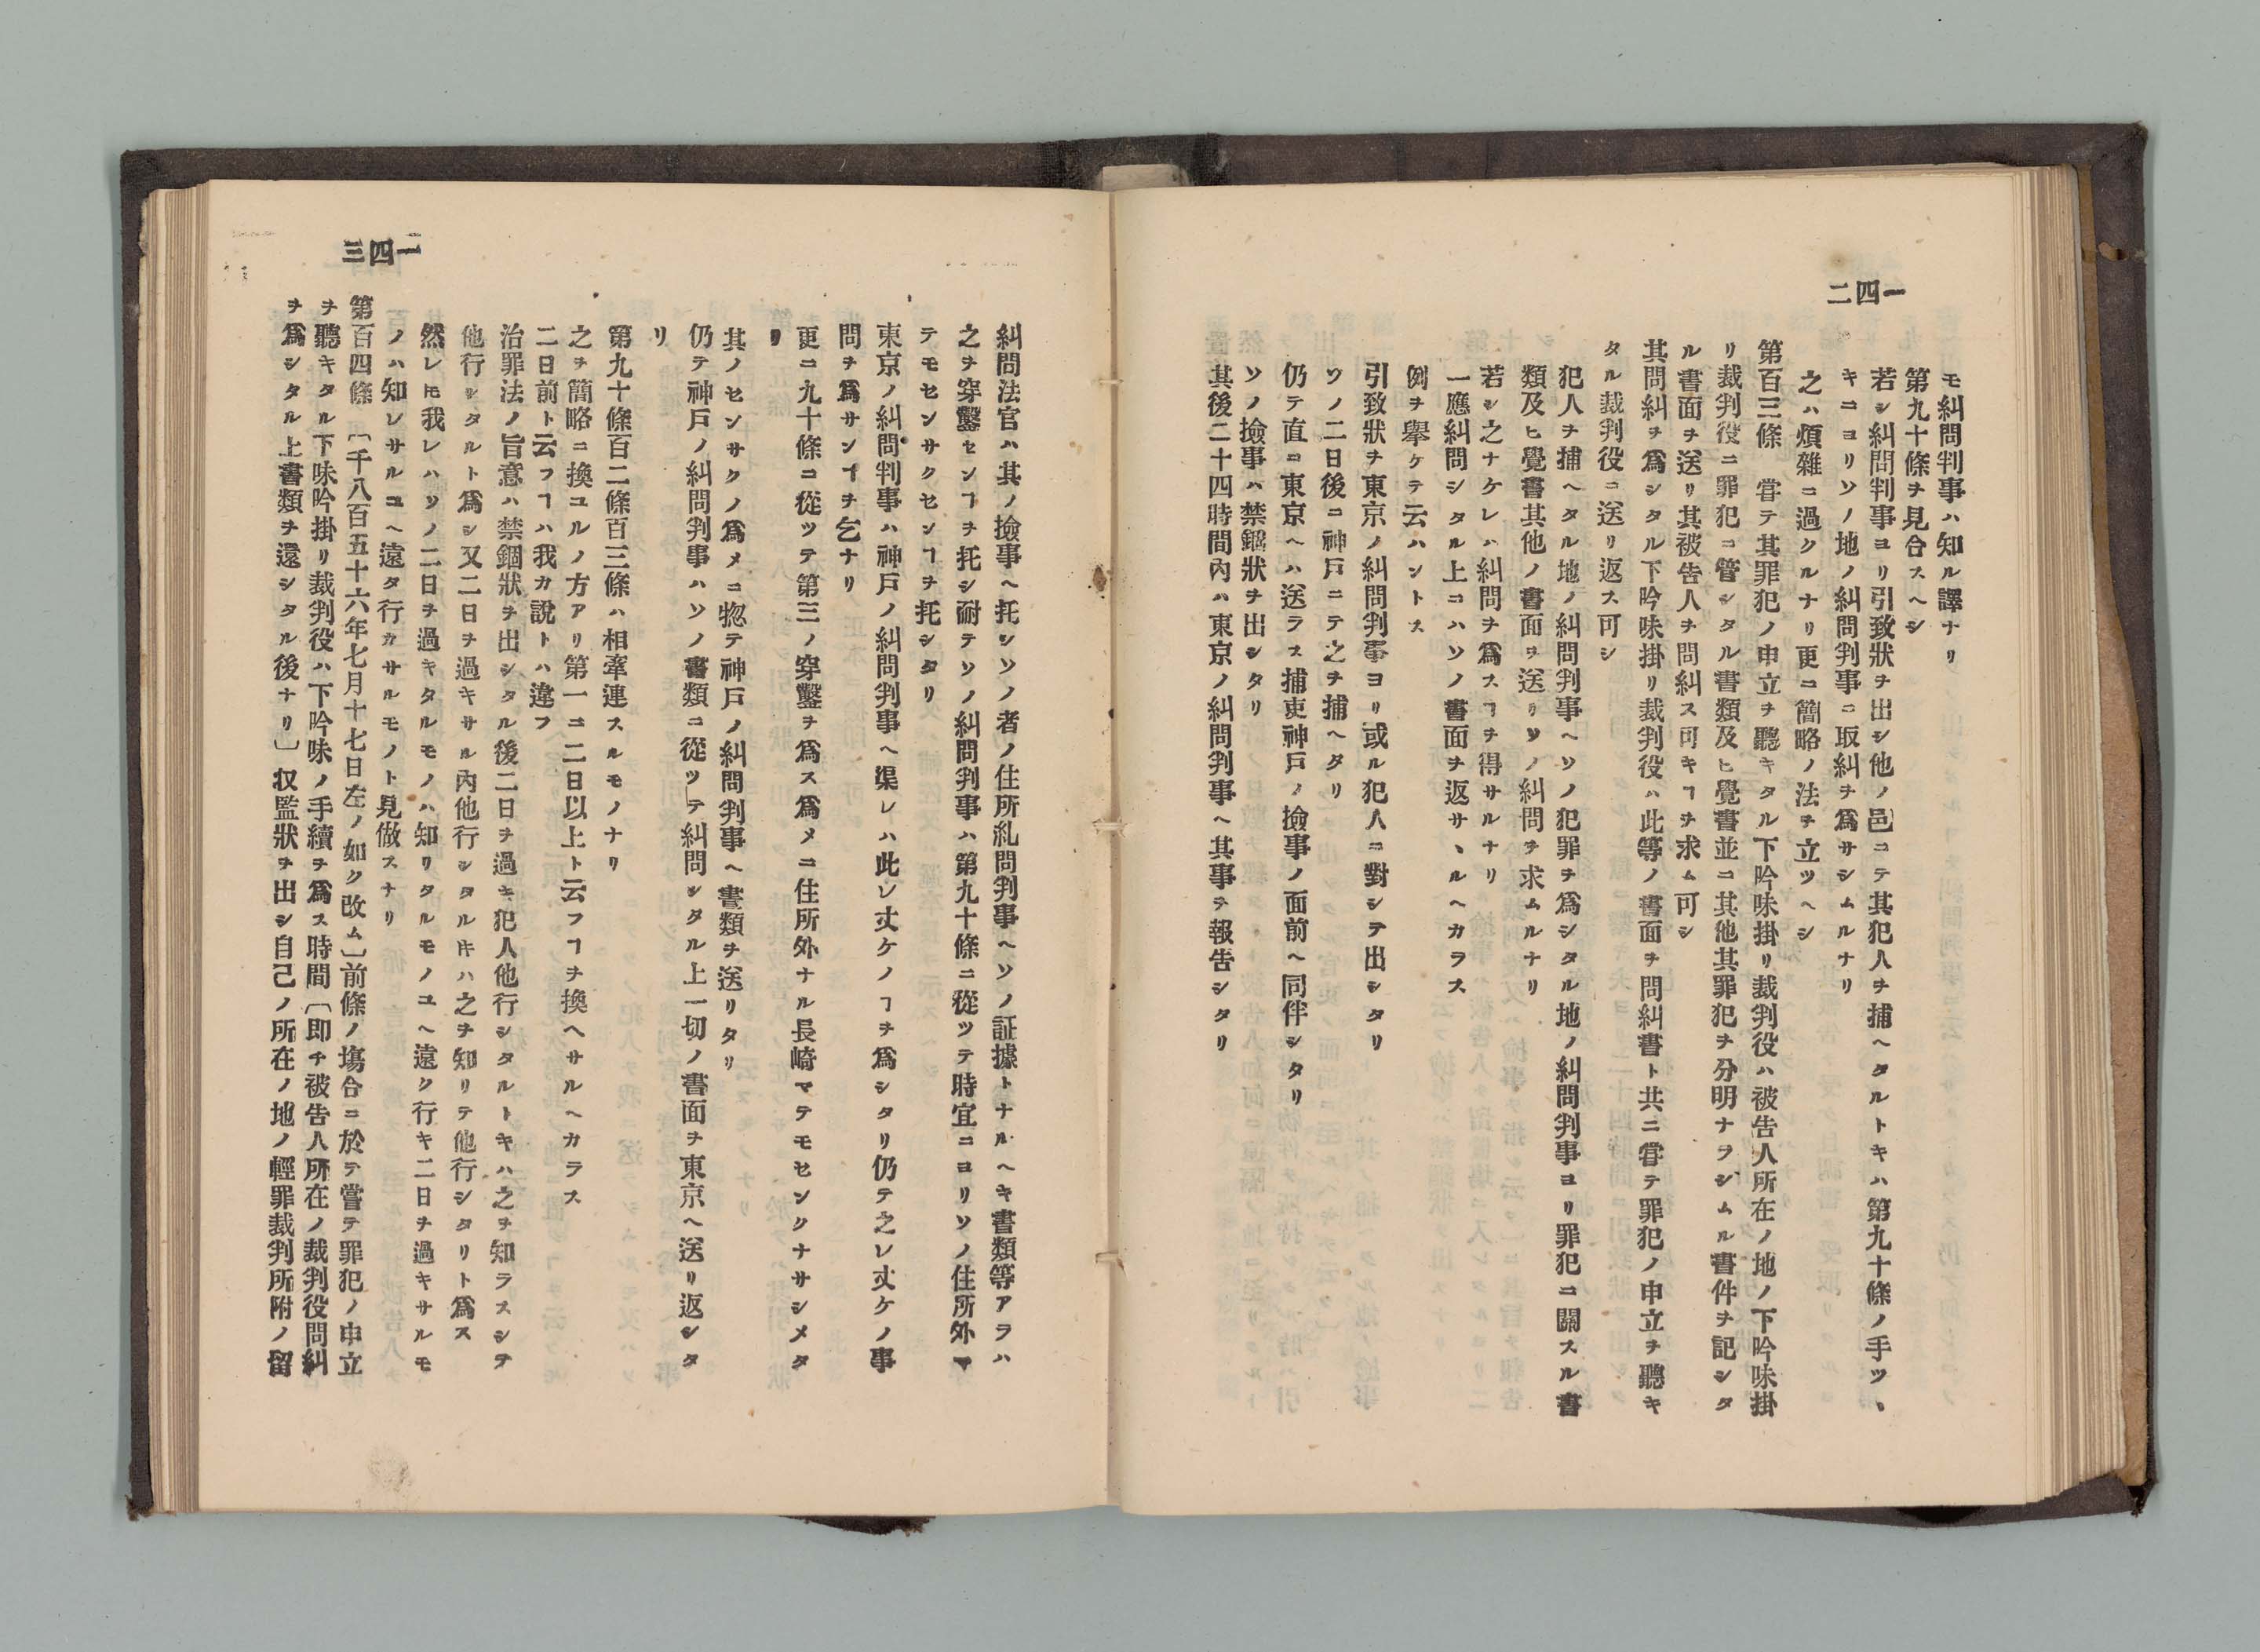 一四二
モ糾問判事ハ知ル譯ナリ
第九十條ヲ見合スヘシ
若シ糾問判事ヨリ引致狀ヲ出シ他ノ邑ニテ其犯人ヲ捕ヘタルトキハ第九十條ノ手ツヽ
キニヨリソノ地ノ糾問判事ニ取糾ヲ爲サシムルナリ
之ハ煩雜ニ過クルナリ更ニ簡略ノ法ヲ立ツヘシ
第百三條 甞テ其罪犯ノ申立ヲ聽キタル下吟味掛リ裁判役ハ被告人所在ノ地ノ下吟味掛
リ裁判役ニ罪犯ニ管シタル書類及ヒ覺書並ニ其他其罪犯ヲ分明ナラシムル書件ヲ記シタ
ル書面ヲ送リ其被告人ヲ問糾ス可キヿヲ求ム可シ
其問糾ヲ爲シタル下吟味掛リ裁判役ハ此等ノ書面ヲ問糾書ト共ニ甞テ罪犯ノ申立ヲ聽キ
タル裁判役ニ送リ返ス可シ
犯人ヲ捕ヘタル地ノ糾問判事ヘソノ犯罪ヲ爲シタル地ノ糾問判事ヨリ罪犯ニ關スル書
類及ヒ覺書其他ノ書面ヲ送リソノ糾問ヲ求ムルナリ
若シ之ナケレハ糾問ヲ爲スヿヲ得サルナリ
一應糾問シタル上ニハソノ書面ヲ返サヽルヘカラス
例ヲ擧ケテ云ハントス
引致狀ヲ東京ノ糾問判事ヨリ或ル犯人ニ對シテ出シタリ
ソノ二日後ニ神戸ニテ之ヲ捕ヘタリ
仍テ直ニ東京ヘハ送ラス捕吏神戸ノ撿事ノ面前ヘ同伴シタリ
ソノ撿事ハ禁錮狀ヲ出シタリ
其後二十四時間內ハ東京ノ糾問判事ヘ其事ヲ報告シタリ
一四三
糾問法官ハ其ノ撿事ヘ托シソノ者ノ住所糺問判事ヘソノ証據トナルヘキ書類等アラハ
之ヲ穿鑿センヿヲ托シ耐テソノ糾問判事ハ第九十條ニ從ツテ時宜ニヨリソノ住所外マ
テモセンサクセンヿヲ托シタリ
東京ノ糾問判事ハ神戸ノ糾問判事ヘ渠レハ此レ丈ケノヿヲ爲シタリ仍テ之レ丈ケノ事
問ヲ爲サンヿヲ乞ナリ
更ニ九十條ニ從ツテ第三ノ穿鑿ヲ爲ス爲メニ住所外ナル長崎マテモセンクナサシメタ
リ
其ノセンサクノ爲メニ惣テ神戸ノ糾問判事ヘ書類ヲ送リタリ
仍テ神戸ノ糾問判事ハソノ書類ニ從ツテ糾問シタル上一切ノ書面ヲ東京ヘ送リ返シタ
リ
第九十條百二條百三條ハ相牽連スルモノナリ
之ヲ簡略ニ換ユルノ方アリ第一ニ二日以上ト云フヿヲ換ヘサルヘカラス
二日前ト云フヿハ我カ說トハ違フ
治罪法ノ旨意ハ禁錮狀ヲ出シタル後二日ヲ過キ犯人他行シタルトキハ之ヲ知ラスシテ
他行シタルト爲シ又二日ヲ過キサル內他行シタルキハ之ヲ知リテ他行シタリト爲ス
然レ𪜈我レハソノ二日ヲ過キタルモノハ知リタルモノユヘ遠ク行キ二日ヲ過キサルモ
ノハ知レサルユヘ遠タ行カサルモノト見做スナリ
第百四條 〔千八百五十六年七月十七日左ノ如ク改ム〕前條ノ塲合ニ於テ嘗テ罪犯ノ申立
ヲ聽キタル下味吟掛リ裁判役ハ下吟味ノ手續ヲ爲ス時間〔即チ被告人所在ノ裁判役問糾
ヲ爲シタル上書類ヲ還シタル後ナリ〕収監狀ヲ出シ自己ノ所在ノ地ノ輕罪裁判所附ノ留